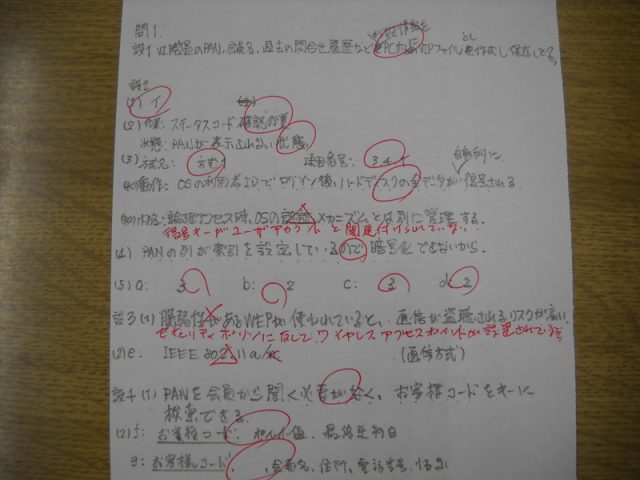 問1.
設1 は暗置のPAN,会員名,過去の問合せ履歴など をPC内のZIPファイル を作成し保存してる。
設2
(1) イ
(2) 作業: ステータスコード確認作業
状態: PANが表示されない状態
(3) 方式名: 方式1 要求番号: 3.4.1
自動的に
(4) 動作: OSの利用者IDでログイン後、ハードディスクの全データが復号される.
論理アクセス時、OSの認証メカニズムとは別に管理する.
復号キーがユーザアカウントと関連付けられていない…
PANの列が索引を設定しているので,暗号化できないから.
(5) a: 3 b: 2 c: 3 d: 2
設3 (1) 脆弱性があるWEPが使われていると、通信が盗聴されるリスクが高い
セキュリティポリシになして、ワイヤレスアクセスポイントが設置されている
(2) e: IEEE 802.11a/ (通信方式)
設4 (1) PANを会員から聞く必要がなく、お客様コードをキーに
検索できる.
(2) f: お客様コード, ポイント値, 最終更新日
g: お客様コード, 会員名, 住所, 電話番号,